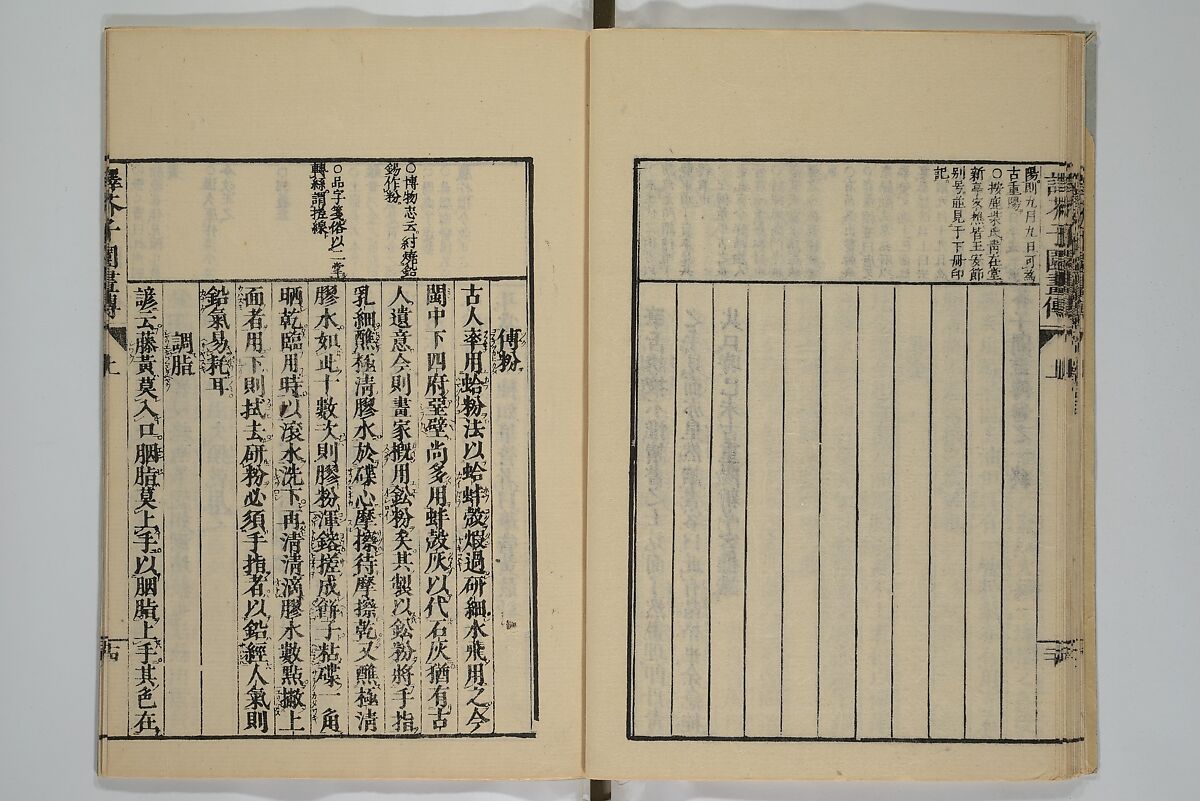 陽則九月九日可為
古重陽
○按塵葉氏靑在堂
新亭客樵皆王安節
別号並見于下册印
記
芥子園畫傳
上
○博物志云紂燒鉛
錫作粉
○品字箋俗以二掌
轉絲謂搓線
傅粉
古人率用蛤粉法以蛤蚌殼煅過研細水飛用之今
閩中下四府堊壁尚多用蚌殼灰以代石灰猶有古
人遺意今則畫家概用鉛粉矣其製以鉛粉將手指
乳細蘸極淸膠水於碟心摩擦待摩擦乾又蘸極淸
膠水如此十數次則膠粉渾鎔搓成餅子粘碟一角
晒乾臨用時以滾水洗下再淸淸滴膠水數點撇上
面者用下則拭去研粉必須手指者以鉛經人氣則
鉛氣易耗耳
調脂
諺云藤黃莫入口胭脂莫上手以胭脂上手其色在
芥子園畫傳
上